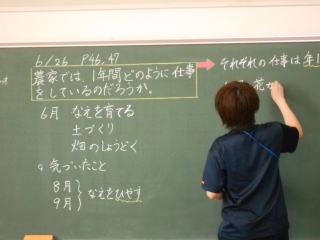 6/26 P46.47
農家では、1年間どのように仕事
をしているのだろうか。
6月 なえを育てる
土づくり
畑のしょうどく
○気づいたこと
8月
9月
なえをひやす
それぞれの仕事は年1
花が